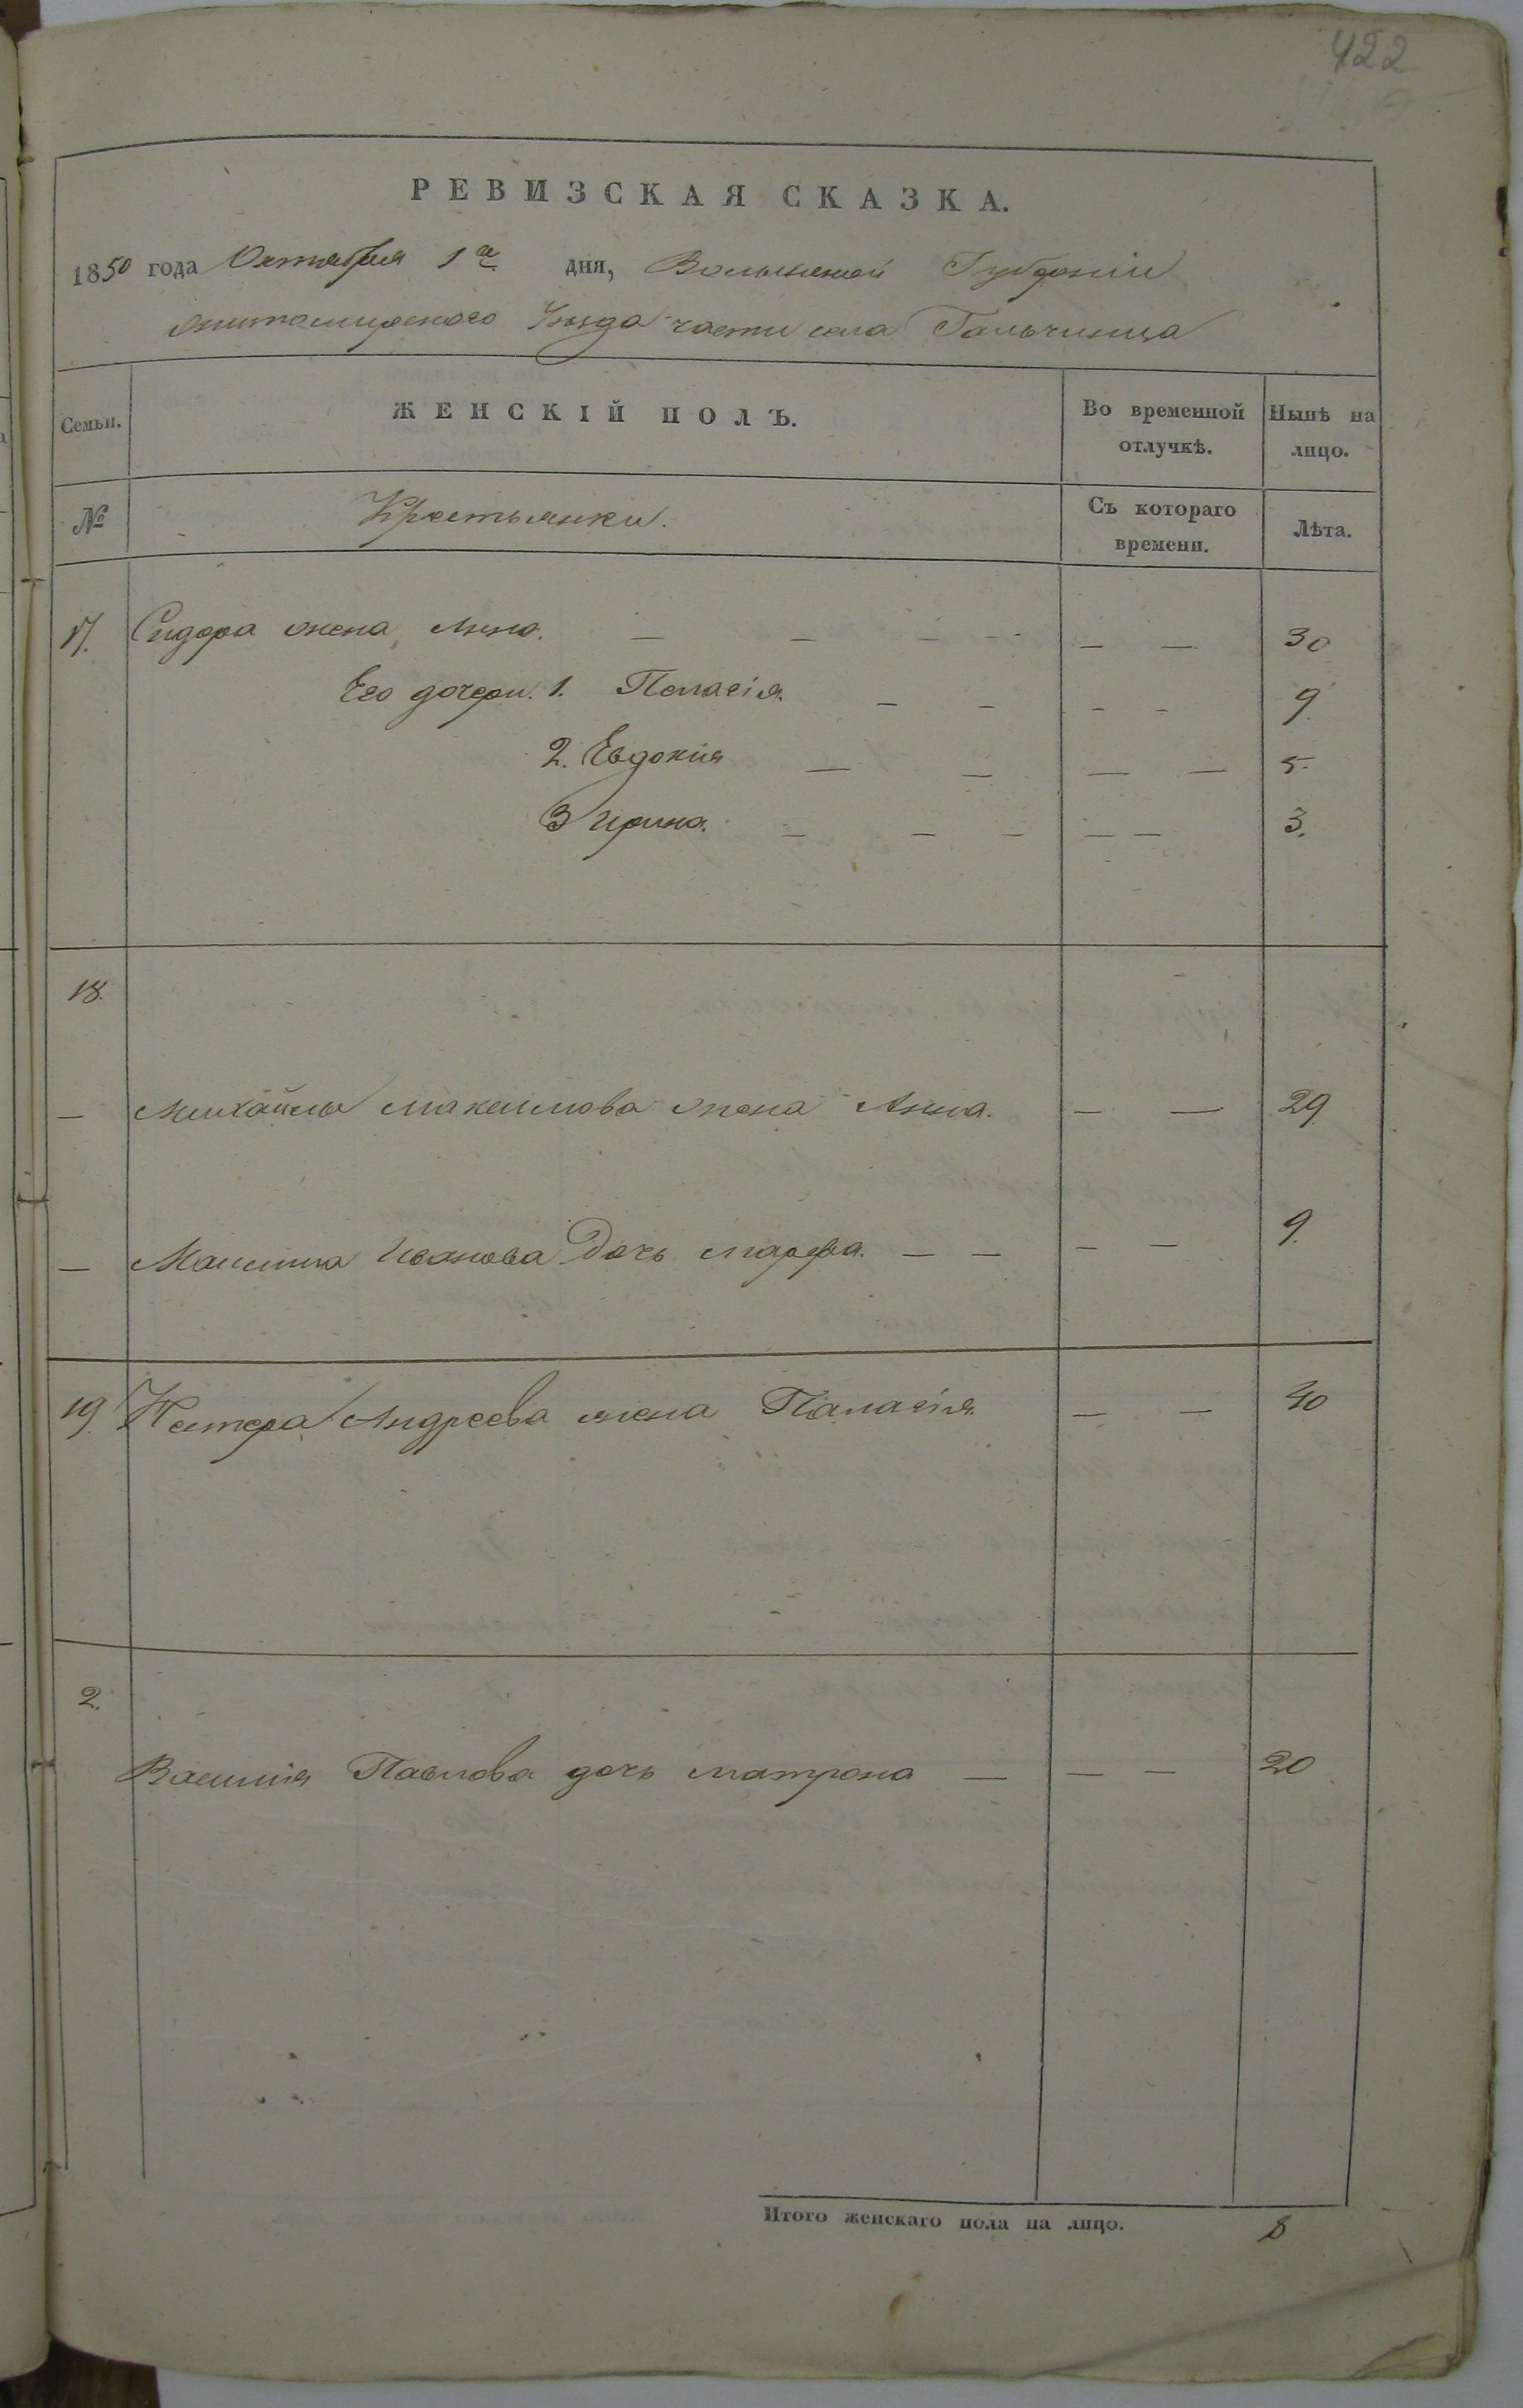 422
РЕВИЗСКАЯ СКАЗКА.
1850 года Октября 1го дня, Волынской Губерніи
Житомирского Уезда части села Гальчинца
Семьи. ЖЕНСКІЙ ПОЛЪ. Во временной отлучкѣ. Нынѣ на лицо.
№ Крестьянки. Съ котораго времени. Лѣта.
17. Сидора жена Анна. — — — — — — 30
Его дочери. 1. Пелагія. — — — — 9.
2. Евдокия — — — — 5.
3 Ирина. — — — — — 3.
18.
— Михайлы Максимова жена Анна. — — 29
— Максима Иванова Дочь Марфа. — — — — 9.
19. Нестера Андреева жена Палагія — — 40
2.
Василія Павлова дочь Матрона — — — 20
Итого женскаго пола на лицо. 8